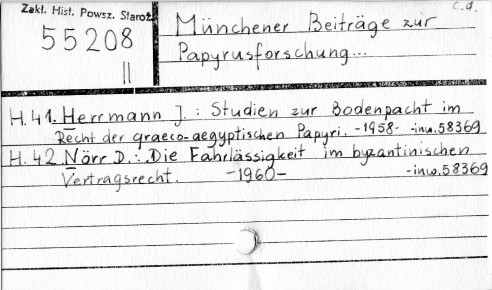 c.d.
Zakł. Hist. Powsz. Staroż.
55208
II
Münchener Beiträge zur
Papyrusforschung...
H.41. Herrmann J.: Studien zur Bodenpacht im
Recht der graeco-aegyptischen Papyri. -1958- -inw.58369
H.42. Nörr D.: Die Fahrlässigkeit im byzantinischen
Vertragsrecht. -1960- -inw.58369